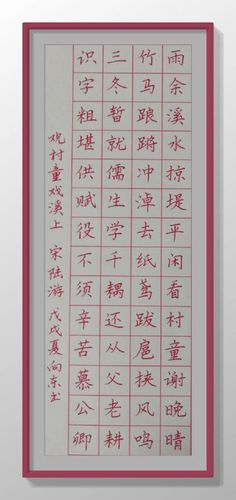 雨余溪水掠堤平闲看村童谢晚晴
竹马踉蹡冲淖去纸鸢跋扈挟风鸣
三冬暂就儒生学千耦还从父老耕
识字粗堪供赋役不须辛苦慕公卿
观村童戏溪上 宋陆游 戊戌夏向东书